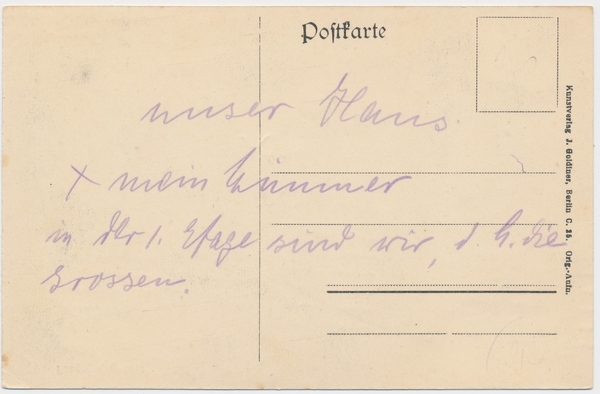 Postkarte
unser Haus
x mein Zimmer
in der 1. Etage sind wir, d. h. die
Grossen.
Kunstverlag J. Goldiner, Berlin C. 25. Orig.-Aufn.